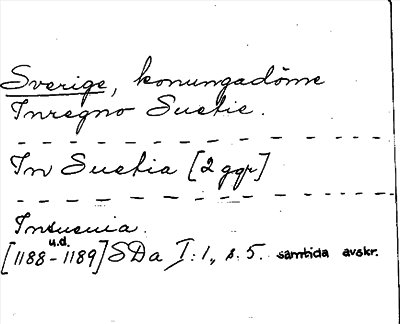 Sverige, konungadöme
In regno Suetie.
In Suetia [2 ggr]
In suecia.
[u.d. 1188-1189] SDa I:1, s. 5. samtida avskr.